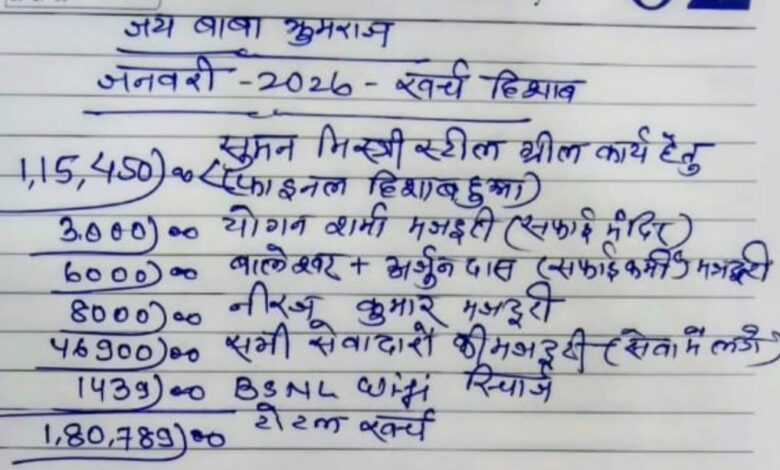 जय बाबा कुमराज
जनवरी -2026 - खर्च हिशाब
1,15,450)00 सुमन मिस्त्री स्टील ग्रील कार्य हेतु
(फाइनल हिशाब हुआ)
3.000)00 योगन शर्मा मजइटी (सफाई मंदिर)
6000)00 बालेश्वर + अर्जुन दास (सफाई कर्मी) मजदूरी
8000)00 नीरज कुमार मजदूरी
46900)00 सभी सेवादारो की मजदूरी (सेवा में लगे)
1439)00 BSNL रिचार्ज
1,80,789)00 टोटल खर्च